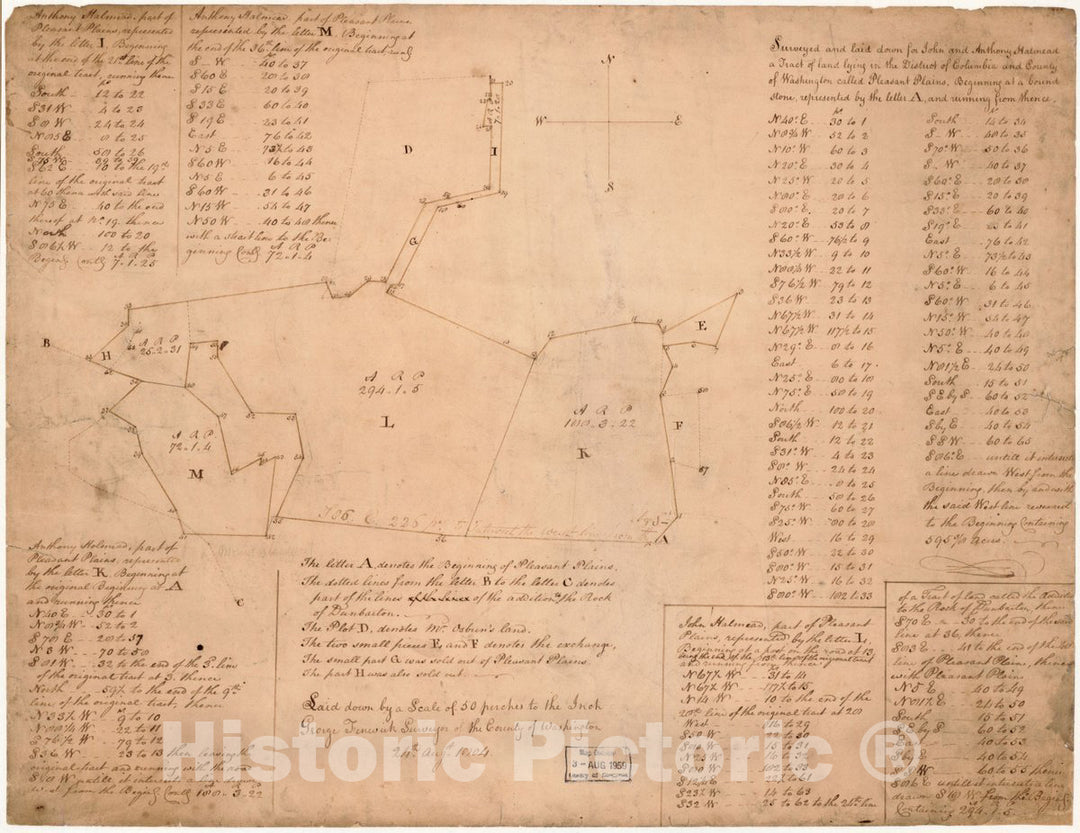 Anthony Holmead, part of
Pleasant Plains, represented
by the letter I, Beginning
at the end of the 21st line of the
original tract, running thence
South 12 to 22
S 31 W 4 to 23
S 81 W 24 to 24
N 85 E 8 to 25
South 58 to 26
line of the original tract
N 75 E 40 to the end
thereof at No. 19. thence
North 100 to 20
S 86½ W 12 to the
A R P
7..1..25
Anthony Holmead part of Pleasant Plains
represented by the letter M, Beginning at
the end of the 36th line of the original tract
S - W 40 to 37
S 60 E 20 to 38
S 15 E 20 to 39
S 33 E 60 to 40
S 19 E 23 to 41
East 76 to 42
N 5 E 73½ to 43
S 60 W 16 to 44
N 5 E 6 to 45
S 60 W 31 to 46
N 15 W 54 to 47
N 50 W 40 to 48 thence
with a strait line to the Be-
ginning Cont'g 72..1..4
A R P
Surveyed and laid down for John and Anthony Holmead
a Tract of land lying in the District of Columbia and County
of Washington called Pleasant Plains, Beginning at a bound
stone, represented by the letter A, and running from thence.
N 40° E 30 to 1
N 8¾ W 52 to 2
N 10° W 60 to 3
N 20° E 30 to 4
N 25° W 20 to 5
N 80° E 20 to 6
S 80° E 28 to 7
N 20° E 53 to 8
S 60° W 76½ to 9
N 33½ W 9 to 10
N 80¼ W 22 to 11
S 76½ W 79 to 12
S 36 W 23 to 13
N 67½ W 31 to 14
N 67½ W 117½ to 15
N 29° E 8 to 16
East 6 to 17
N 25° E 80 to 18
N 75° E 50 to 19
North 100 to 20
S 86½ W 12 to 21
South 12 to 22
S 31° W 4 to 23
S 81° W 24 to 24
N 85° E 8 to 25
South 58 to 26
S 75° W 60 to 27
S 25° W 80 to 28
West 16 to 29
S 50° W 22 to 30
S 80° W 15 to 31
N 25° W 16 to 32
S 80° W 102 to 33
South 14 to 34
S - W 40 to 35
S 70° W 50 to 36
S - W 40 to 37
S 60° E 20 to 38
S 15° E 20 to 39
S 33° E 60 to 40
S 19° E 23 to 41
East 76 to 42
N 5° E 73½ to 43
S 60° W 16 to 44
N 5° E 6 to 45
S 60° W 31 to 46
N 15° W 54 to 47
N 50° W 40 to 48
N 5° E 40 to 49
N 81½ E 24 to 50
South 15 to 51
S E by S 60 to 52
East 40 to 53
S by E 40 to 54
S S W 60 to 55
S 86° E untill it intersects
a line drawn West from the
Beginning, then by and with
the said West line reversed
to the Beginning Containing
595 acres.
N
W E
S
D
I
G
E
B
H
A R P
25..2..31
A R P
294..1..5
L
A R P
180..3..22
K
F
A R P
72..1..4
M
A
C
S 86 E 226 ps
Anthony Holmead, part of
Pleasant Plains, represented
by the letter K Beginning at
the original Beginning at A
and running thence
N 40 E 30 to 1
N 8¾ W 52 to 2
S 70 E 20 to 57
N 3 W 70 to 58
S 81 W 32 to the end of the 3d line
of the original tract at 3. thence
North 59½ to the end of the 9th
line of the original tract, thence
N 33½ W 9 to 10
N 80¼ W 22 to 11
S 76½ W 79 to 12
S 36 W 23 to 13 then leaving the
original tract and running
S 18 W untill it intersects a line drawn
West from the Begin'g Cont'g 180..3..22
The letter A denotes the Beginning of Pleasant Plains.
The dotted lines from the letter B to the letter C denotes
part of the lines of the addition to the Rock
of Dunbarton.
The Plot D, denotes Mr. Osburn's land.
The two small pieces E, and F denotes the exchange,
The small part G was sold out of Pleasant Plains
The part H was also sold out.
Laid down by a Scale of 50 perches to the Inch
George Fenwick Surveyor of the County of Washington
20th Augt 1824
Map Division
3 - AUG 1959
Library of Congress
John Holmead, part of Pleasant
Plains, represented by the letter L,
Beginning at a post on the road at 13,
and running thence
N 67½ W 31 to 14
N 67½ W 117½ to 15
N 14 W 10 to the end of the
28th line of the original tract at 28
West 16 to 29
S 50 W 22 to 30
S 80 W 15 to 31
N 25 W 16 to 32
S 80 W 102 to 33
S 12½ E 22½ to 61
S 23½ W 14 to 63
S 32 W 25 to 62 to the 24th line
of a Tract of land called the Addition
to the Rock of Dunbarton, then
S 70 E 30 to the end of the said
line at 36, thence
S 03 E 41 to the end of the last
line of Pleasant Plains, thence
with Pleasant Plains
N 5 E 40 to 49
N 81½ E 24 to 50
South 15 to 51
S E by S 60 to 52
East 40 to 53
S by E 40 to 54
S S W 60 to 55 thence
S 86 E untill it intersects a line
drawn S 18 W from the Begin'g
Containing 294..1..5
Historic Pictoric ®